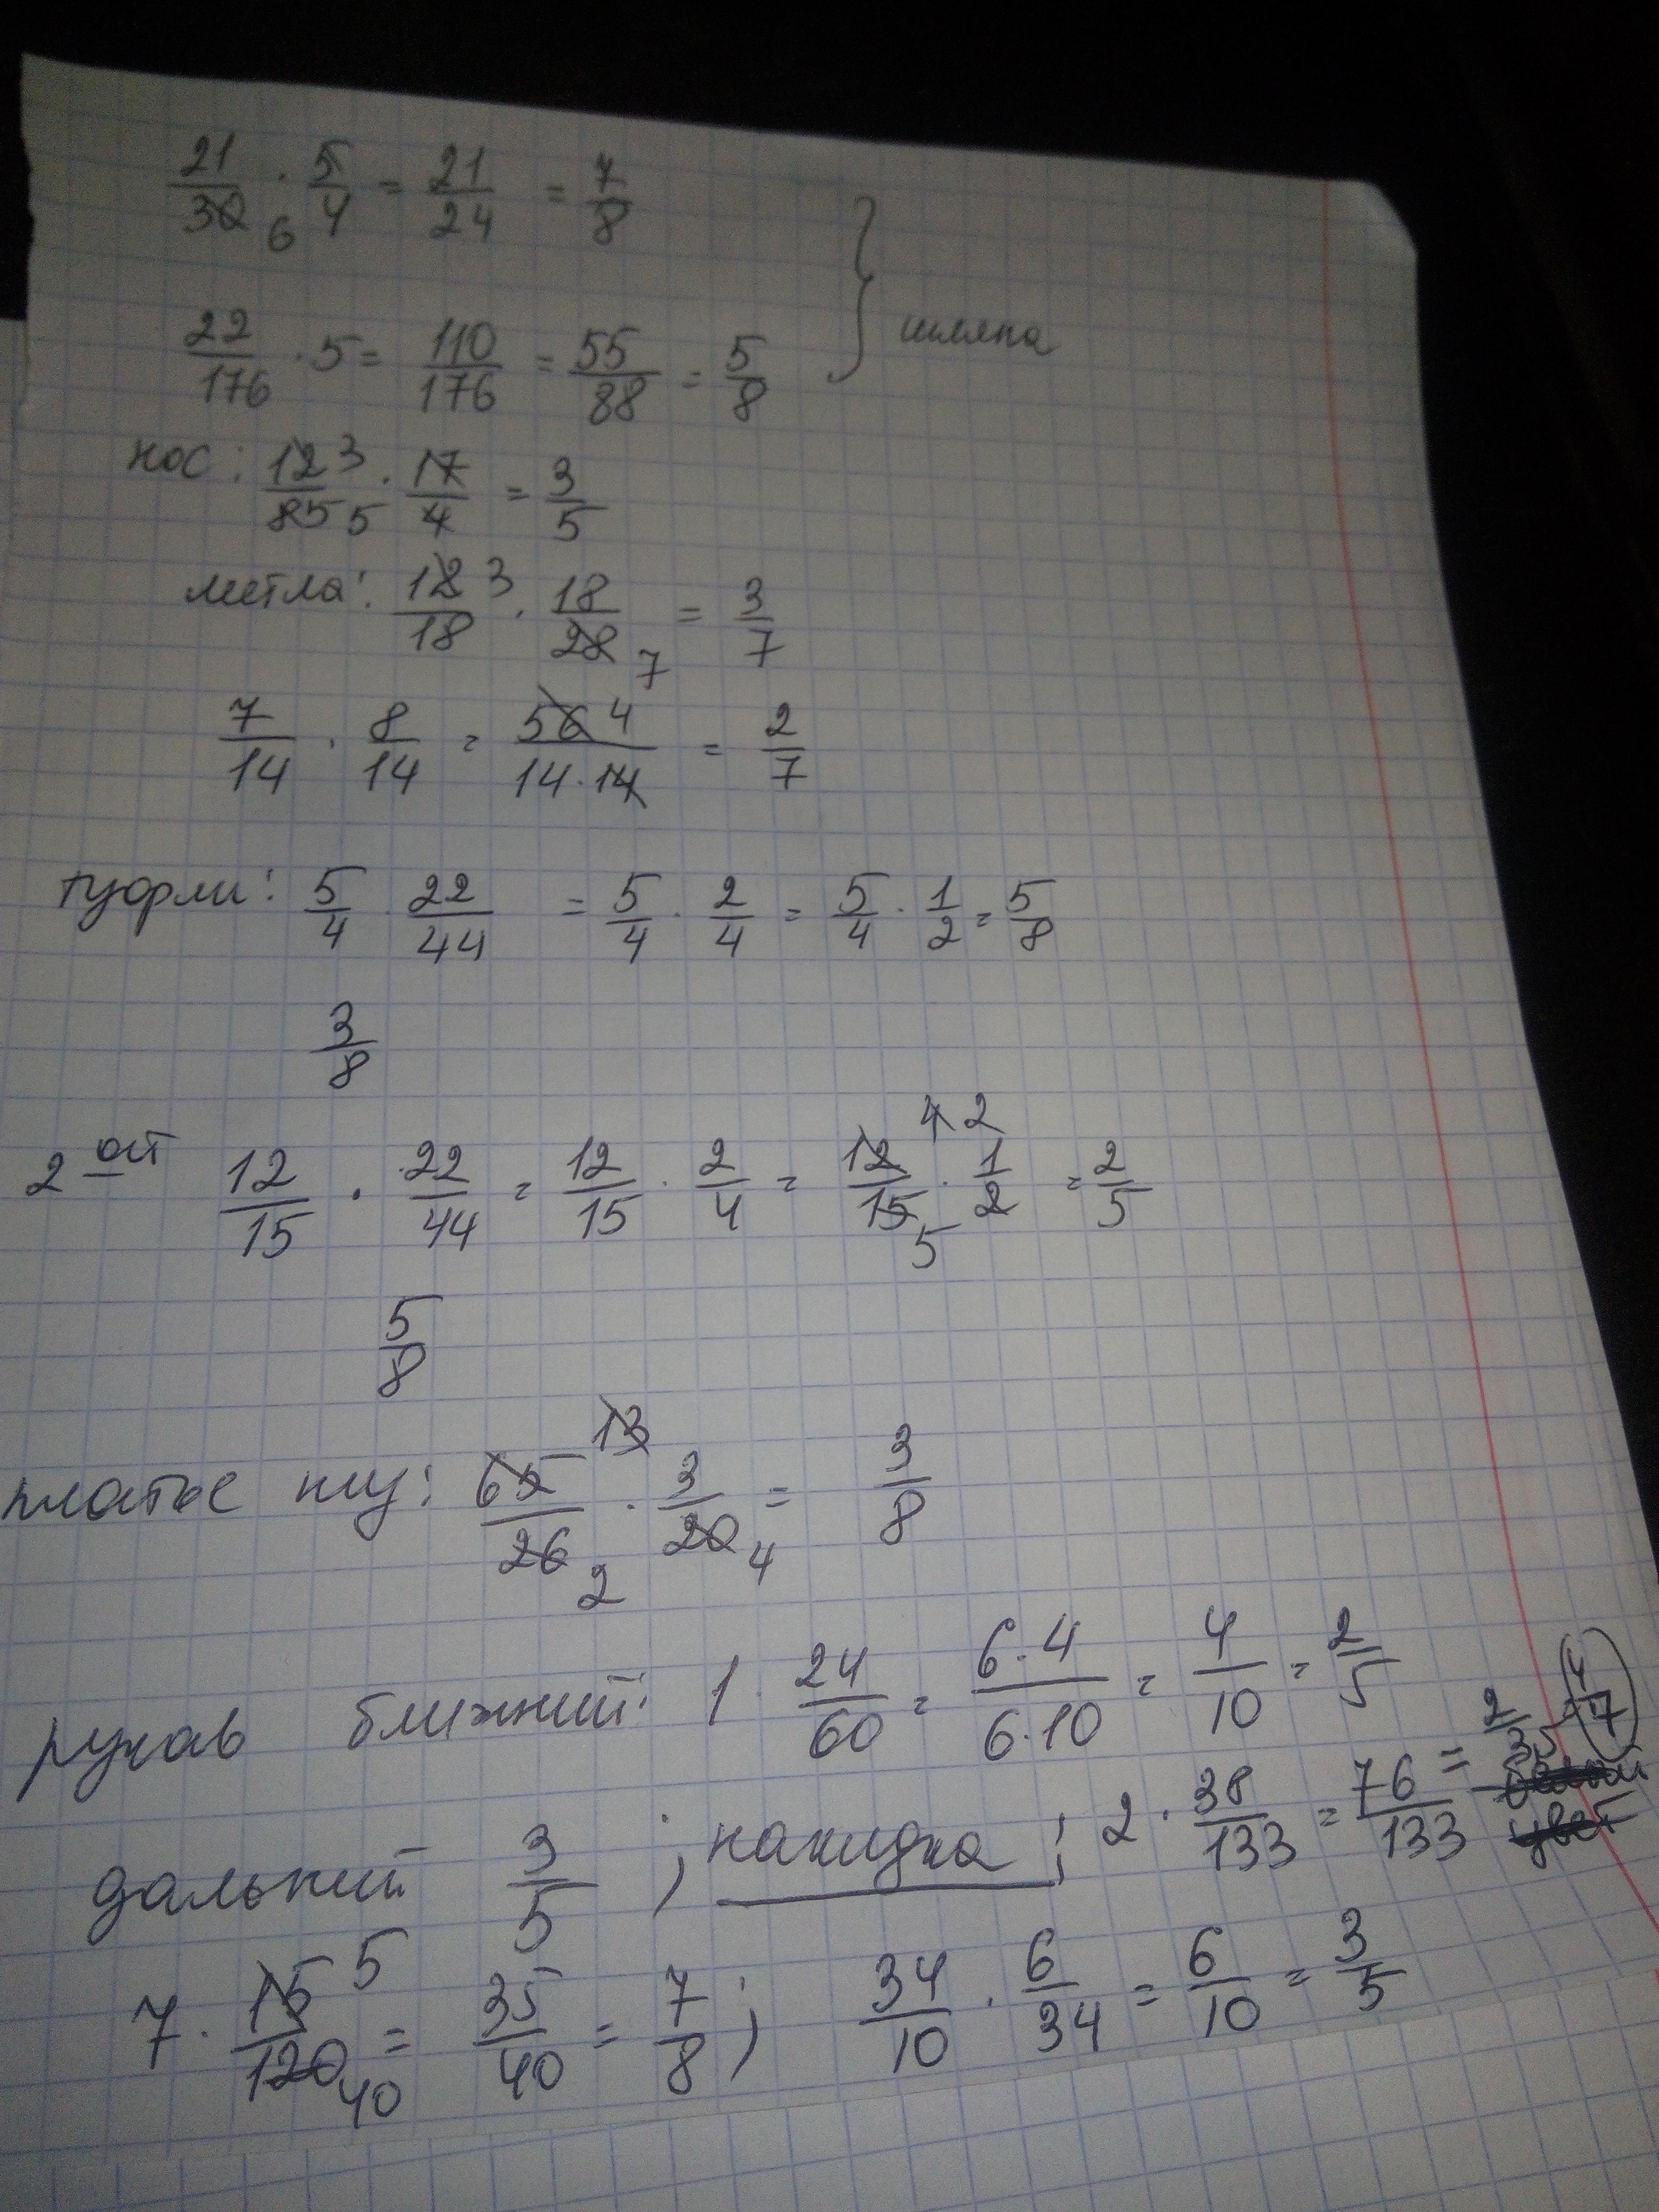 21/30 6 · 5/4 = 21/24 = 7/8
22/176 · 5 = 110/176 = 55/88 = 5/8 } шляпа
нос: 12 3/85 5 · 17/4 = 3/5
метла: 12 3/18 · 18/28 7 = 3/7
7/14 · 8/14 = 56 4/14·14 = 2/7
туфли: 5/4 · 22/44 = 5/4 · 2/4 = 5/4 · 1/2 = 5/8
3/8
2 ой 12/15 · 22/44 = 12/15 · 2/4 = 12 4 2/15 5 · 1/2 = 2/5
5/8
платье низ: 65 13/26 2 · 3/20 4 = 3/8
рукав ближний: 1 · 24/60 = 6·4/6·10 = 4/10 = 2/5
дальний 3/5 ; накидка : 2 · 38/133 = 76/133 = 4/7
7 · 15 5/120 40 = 35/40 = 7/8 ; 34/10 · 6/34 = 6/10 = 3/5